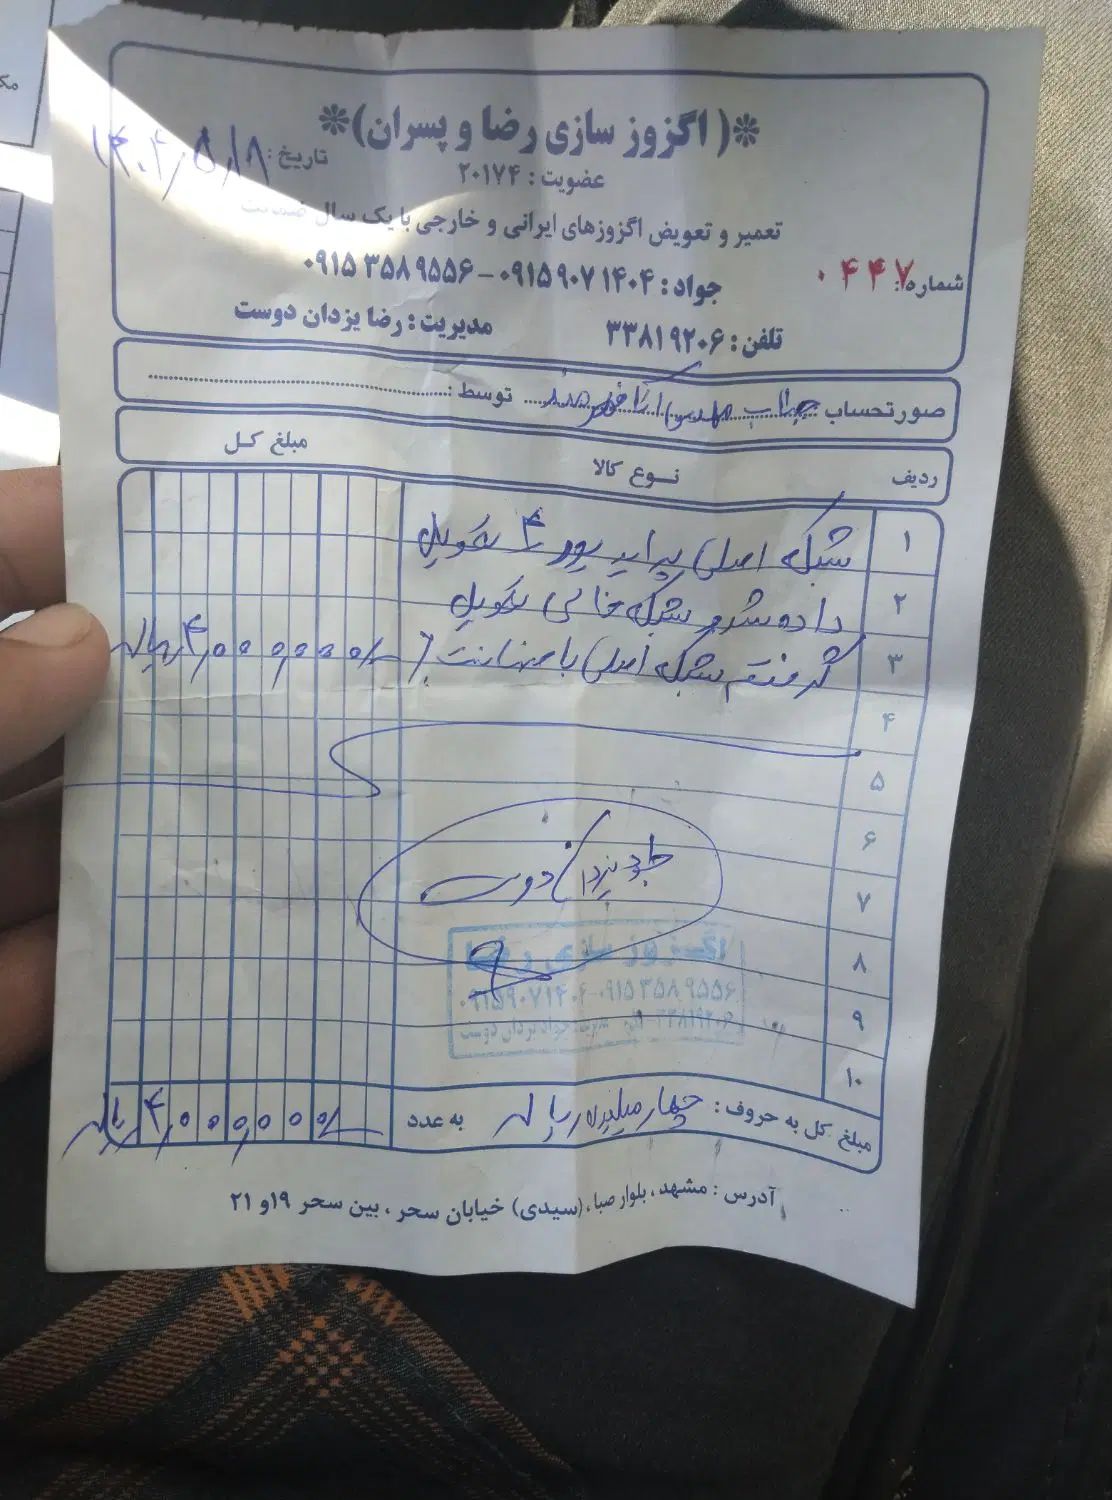 *(اگزوز سازی رضا و پسران)*
تاریخ: ۱۴۰۲/۵/۱۸
عضویت: ۲۰۱۷۴
تعمیر و تعویض اگزوزهای ایرانی و خارجی با یک سال ضمانت
شماره: ۰۴۴۷
جواد: ۰۹۱۵۹۰۷۱۴۰۴-۰۹۱۵۳۵۸۹۵۵۶
تلفن: ۳۳۸۱۹۲۰۶ مدیریت: رضا یزدان دوست
صورتحساب جناب توسط:
ردیف نوع کالا مبلغ کل
۱ شبکه اصلی پراید یورو ۴ تحویل
۲ داده شد و شبکه خالی تحویل
۳ گرفتم شبکه اصلی با ضمانت ۴,۰۰۰,۰۰۰/ ریال
۴
۵
۶
۷
۸
۹
۱۰
جواد یزدان دوست
اگزوز سازی رضا
۰۹۱۵۳۵۸۹۵۵۶-۰۹۱۵۹۰۷۱۴۰۴
مبلغ کل به حروف: چهار میلیون ریال به عدد ۴,۰۰۰,۰۰۰/ ریال
آدرس: مشهد، بلوار صبا، (سیدی) خیابان سحر، بین سحر ۱۹و ۲۱